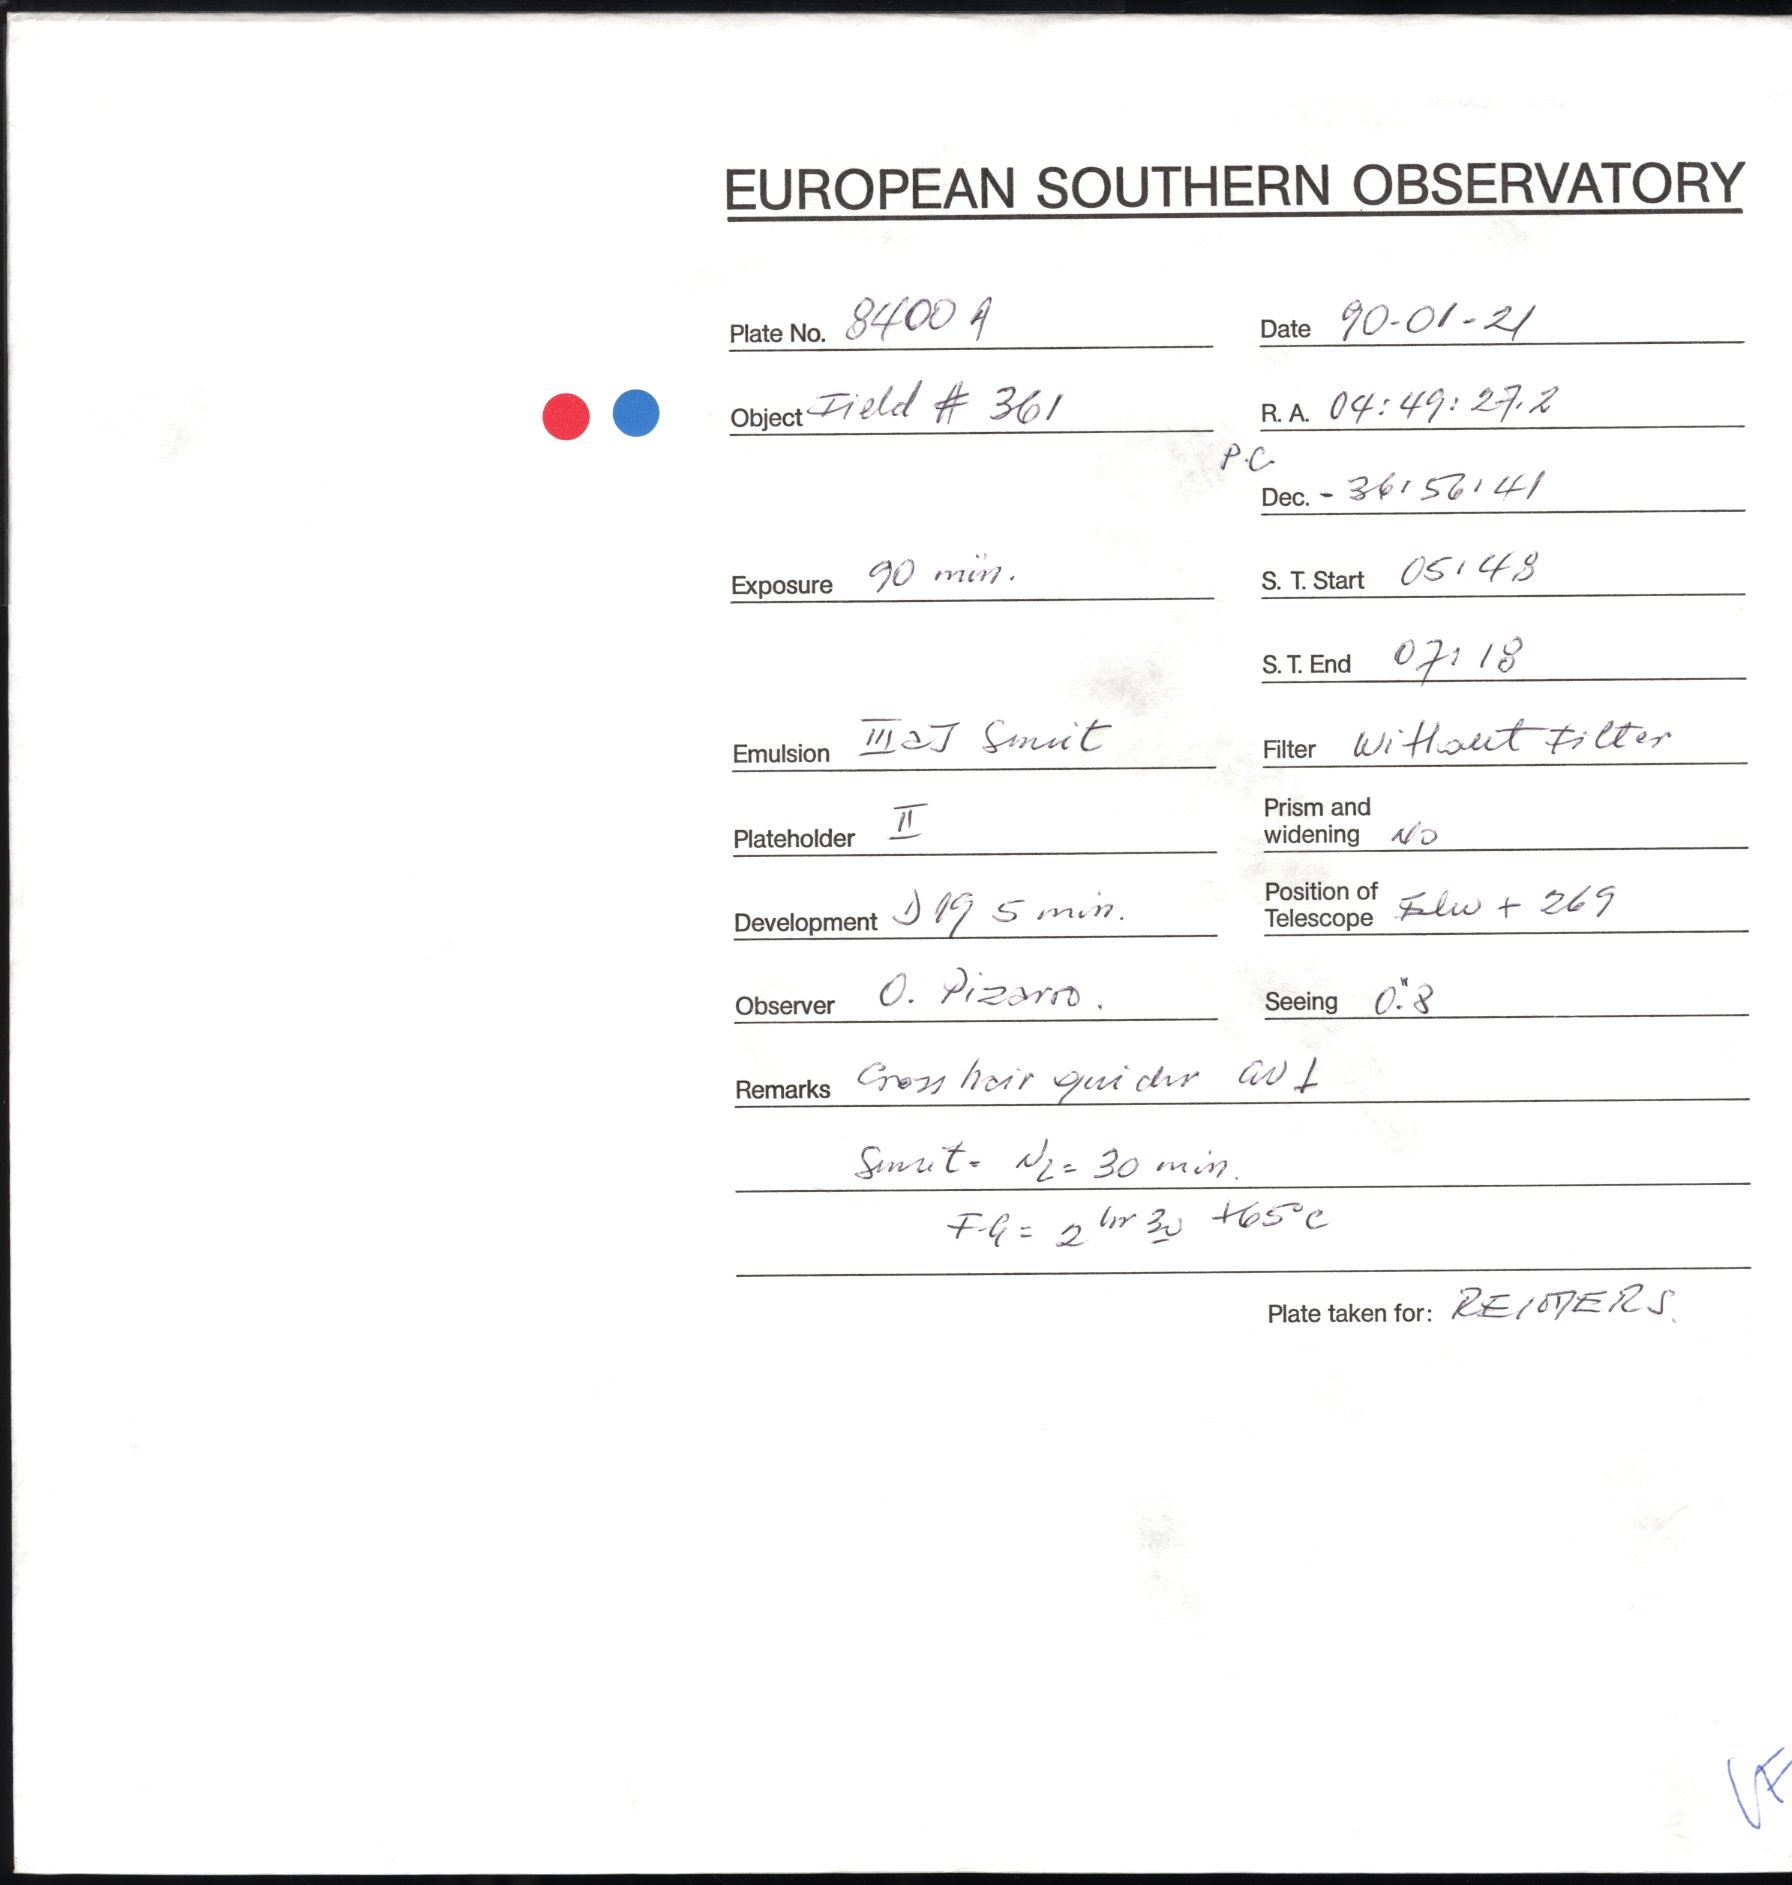 EUROPEAN SOUTHERN OBSERVATORY
Plate No. 8400 A
Date 90-01-21
Object Field # 361
R. A. 04:49:27.2
P.C.
Dec. - 36:56:41
Exposure 90 min.
S. T. Start 05:48
S. T. End 07:18
Emulsion IIIaJ
Filter Without Filter
Plateholder II
Prism and widening No
Development D19 5 min.
Position of Telescope + 269
Observer O. Pizarro.
Seeing 0".8
Remarks Cross hair guider
N2 = 30 min.
F.G = 2 hr 30 +65°C
Plate taken for: REIMERS.